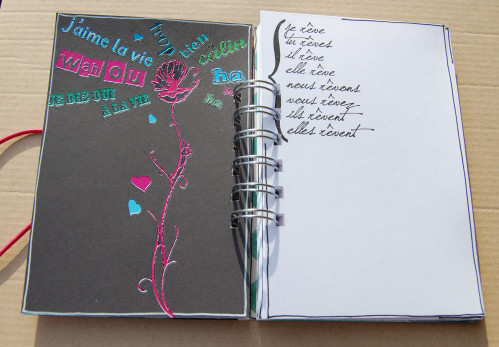 j'aime la vie
trop
bien
câlin
Wah Ou
ha
ha
ha
JE DIS OUI
À LA VIE
je rêve
tu rêves
il rêve
elle rêve
nous rêvons
vous rêvez
ils rêvent
elles rêvent